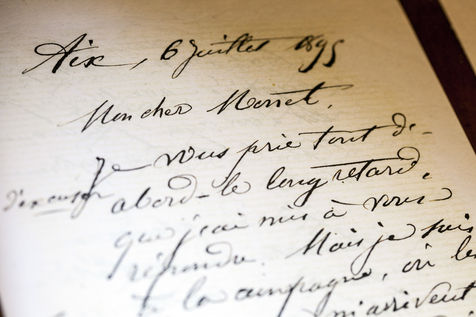 Aix, 6 Juillet 1895
Mon cher Monet,
Je vous prie tout d'-
d'excuser
abord - le long retard,
que j'ai mis à vous
répondre. Mais je suis
à la campagne, où les
m'arrivent